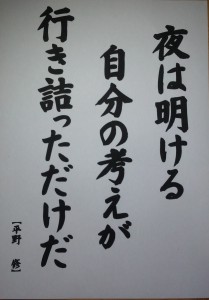 夜は明ける
自分の考えが
行き詰っただけだ
【平野 修】